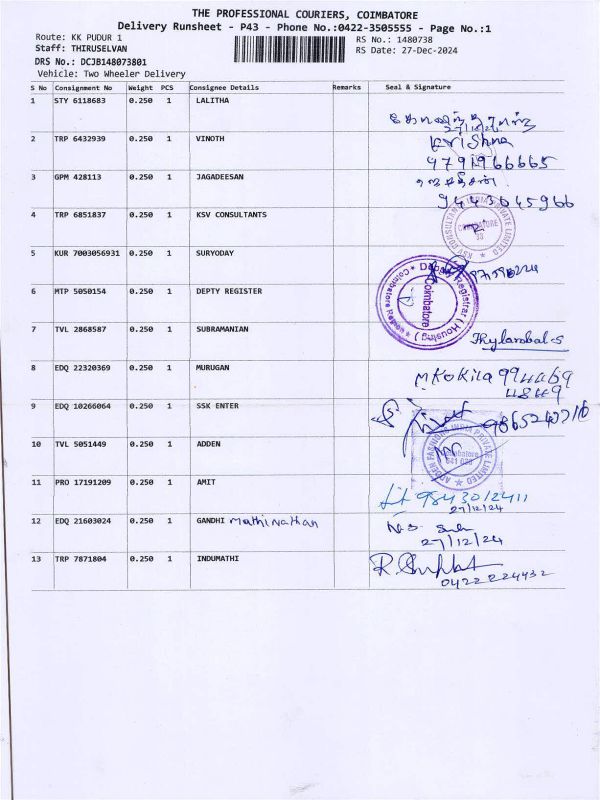 THE PROFESSIONAL COURIERS, COIMBATORE
Delivery Runsheet - P43 - Phone No.:0422-3505555 - Page No.:1
Route: KK PUDUR 1
RS No.: 1480738
Staff: THIRUSELVAN
RS Date: 27-Dec-2024
DRS No.: DCJB148073801
Vehicle: Two Wheeler Delivery
S No Consignment No Weight PCS Consignee Details Remarks Seal & Signature
1 STY 6118683 0.250 1 LALITHA
2 TRP 6432939 0.250 1 VINOTH Krishna
9791966665
3 GPM 428113 0.250 1 JAGADEESAN
9443645966
4 TRP 6851837 0.250 1 KSV CONSULTANTS
KSV CONSULTANTS INDIA PRIVATE LIMITED
COIMBATORE
5 KUR 7003056931 0.250 1 SURYODAY
6 MTP 5050154 0.250 1 DEPTY REGISTER
Deputy Registrar (Housing)
Coimbatore Region
Coimbatore
7 TVL 2868587 0.250 1 SUBRAMANIAN
8 EDQ 22320369 0.250 1 MURUGAN M Kokila 994469
4849
9 EDQ 10266064 0.250 1 SSK ENTER
10 TVL 5051449 0.250 1 ADDEN
ADDEN FASHIONS INDIA PRIVATE LIMITED
Coimbatore
11 PRO 17191209 0.250 1 AMIT 9843012411
27/12/24
12 EDQ 21603024 0.250 1 GANDHI Mathinathan
27/12/24
13 TRP 7871804 0.250 1 INDUMATHI
0422224432